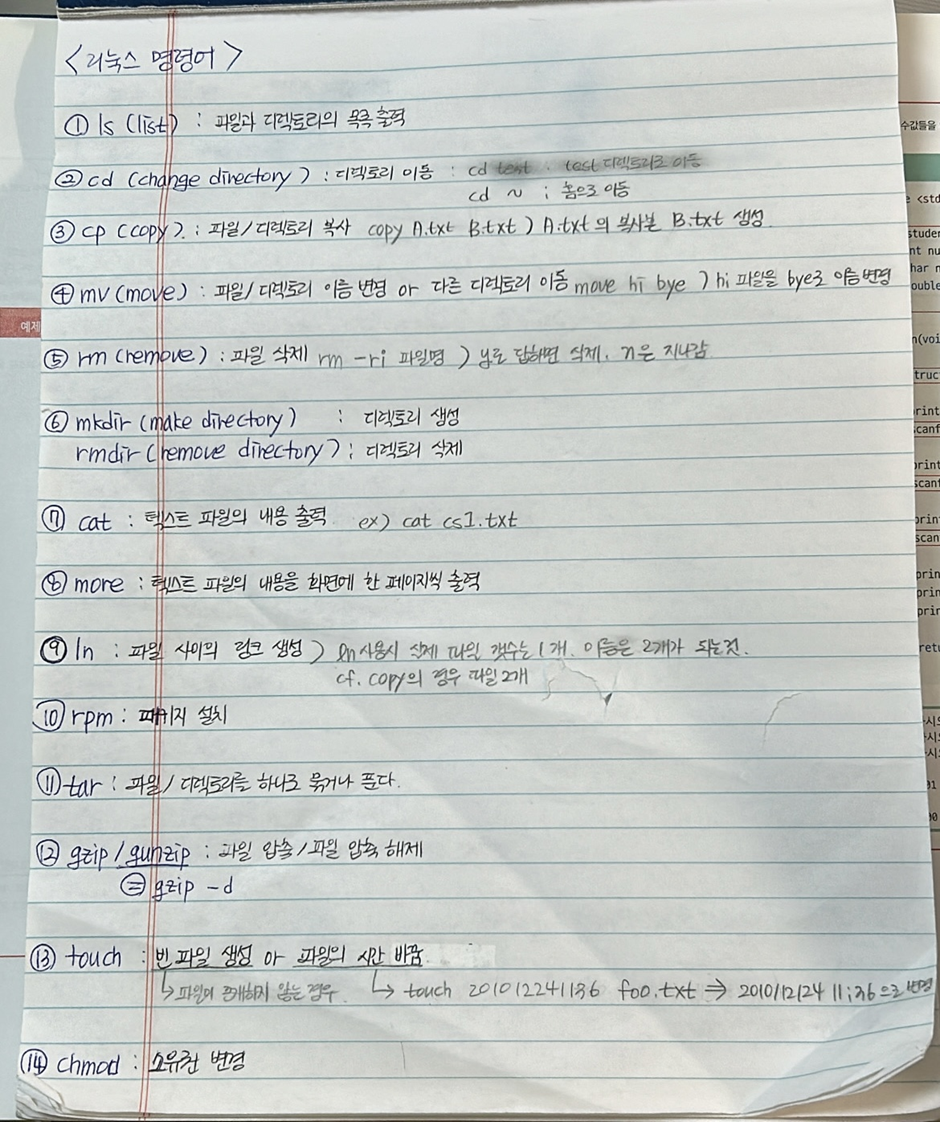 <리눅스 명령어>
① ls (list) : 파일과 디렉토리의 목록 출력
② cd (change directory) : 디렉토리 이동 : cd test : test 디렉토리로 이동
cd ~ ; 홈으로 이동
③ cp (copy) : 파일/디렉토리 복사 copy A.txt B.txt ) A.txt의 복사본 B.txt 생성
④ mv (move) : 파일/디렉토리 이름 변경 or 다른 디렉토리 이동 move hi bye ) hi 파일을 bye로 이름변경
⑤ rm (remove) : 파일 삭제 rm -ri 파일명 ) y로 답하면 삭제. n은 지나감
⑥ mkdir (make directory) : 디렉토리 생성
rmdir (remove directory) : 디렉토리 삭제
⑦ cat : 텍스트 파일의 내용 출력 ex) cat cs1.txt
⑧ more : 텍스트 파일의 내용을 화면에 한 페이지씩 출력
⑨ ln : 파일 사이의 링크 생성 ) ln사용시 실제 파일 갯수는 1개. 이름은 2개가 되는것.
cf. copy의 경우 파일 2개
⑩ rpm : 패키지 설치
⑪ tar : 파일/디렉토리를 하나로 묶거나 푼다.
⑫ gzip / gunzip : 파일 압축/파일 압축 해제
= gzip -d
⑬ touch : 빈 파일 생성 or 파일의 시간 바꿈
↳ 파일이 존재하지 않는 경우 ↳ touch 201012241136 foo.txt ⇒ 2010/12/24 11:36으로 변경
⑭ chmod : 소유권 변경
예제
수값들을